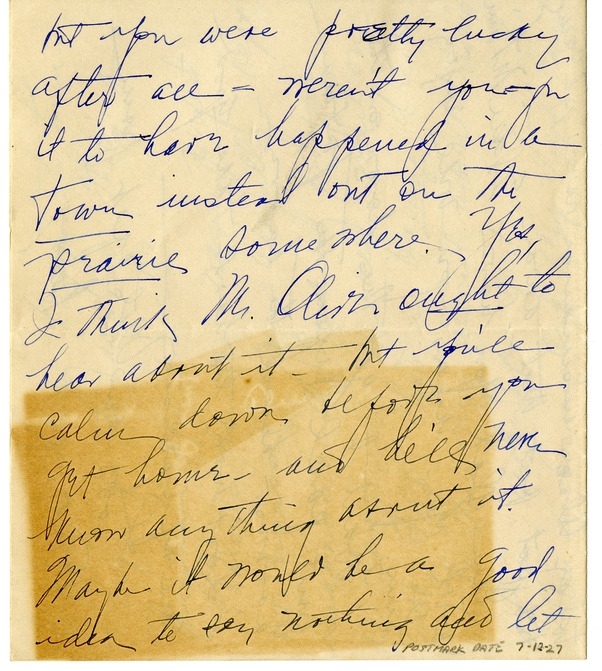 but you were pretty lucky
after all – weren't you – for
it to have happened in a
town instead out on the
prairie somewhere. Yes,
I think Mr. ought to
hear about it – but you'll
calm down before you
get home – and he'll never
know anything about it.
Maybe it would be a good
idea to say nothing and let
POSTMARK DATE 7-12-27